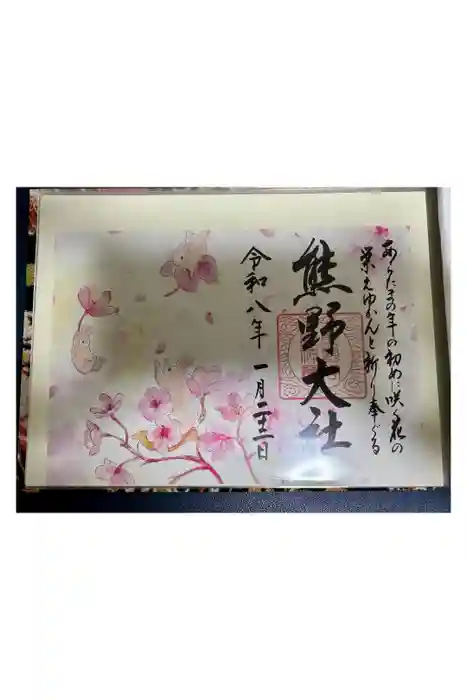 あらたまの年の初めに咲く花の
栄えゆかんと祈り奉げる
熊野大社
令和八年 一月二十二日